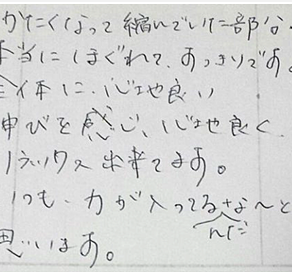 かたくなって縮んでいた部分
本当にほぐれて、すっきりです
全体に、心地良い
伸びを感じ、心地良く、
リラックス出来てます。
いつも、力が入ってるなぁ〜と
んだ
思います。